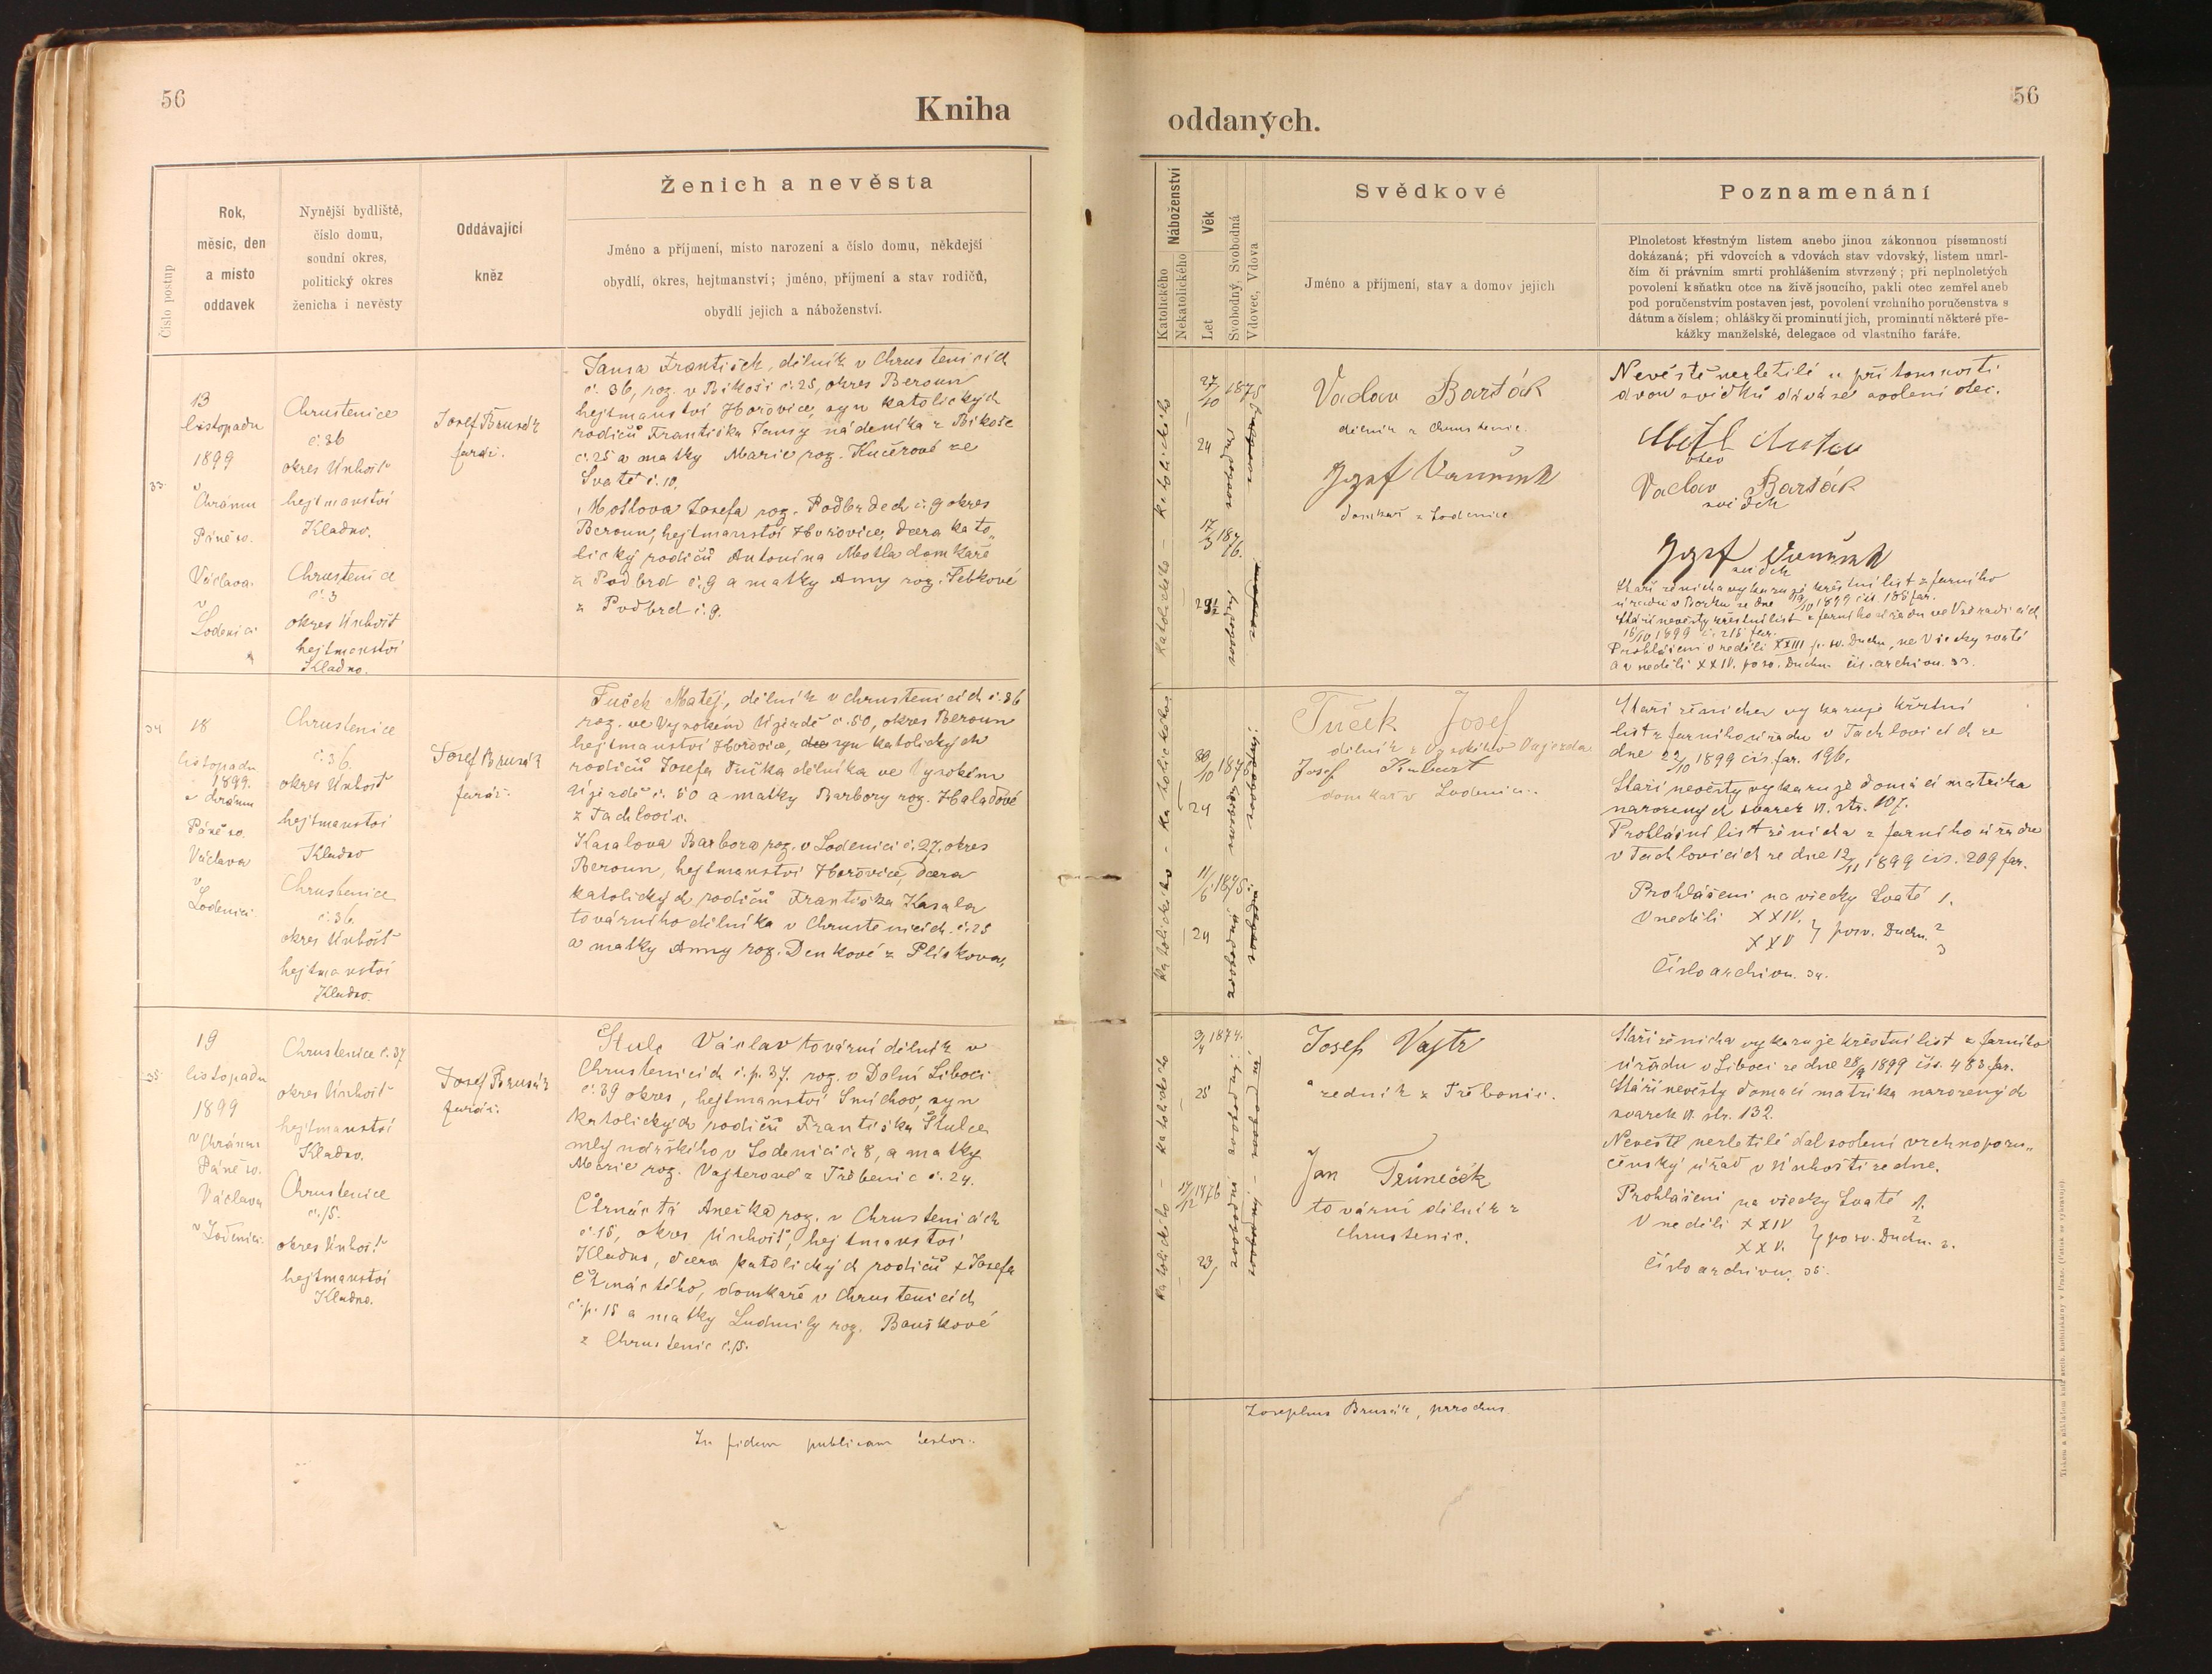 56
Kniha
Číslo postup
Rok,
měsíc, den
a místo
oddavek
Nynější bydliště,
číslo domu,
soudní okres,
politický okres
ženicha i nevěsty
Oddávající
kněz
Ženich a nevěsta
Jméno a příjmení, místo narození a číslo domu, někdejší
obydlí, okres, hejtmanství; jméno, příjmení a stav rodičů,
obydlí jejich a náboženství.
33.
13
listopadu
1899
v
Chrámu
Páně sv.
Václava
v
Loděnici
Chrustenice
č. 36
okres Únhošť
hejtmanství
Kladno.
Chrustenice
č. 3
okres Únhošť
hejtmanství
Kladno.
Josef Brusák
farář.
Jansa František, dělník v Chrustenicích
č. 36, roz. v Bíkoši č. 25, okres Beroun
hejtmanství Hořovice, syn katolických
rodičů Františka Jansy nádeníka z Bíkoše
č. 25 a matky Marie roz. Kučerové ze
Svaté č. 10.
Motlova Josefa roz. Podbrdech č. 9 okres
Beroun, hejtmanství Hořovice, dcera kato„
lický rodičů Antonína Motla domkaře
z Podbrd č. 9 a matky Anny roz.
z Podbrd č. 9.
34
18
listopadu
1899.
v chrámu
Páně sv.
Václava
v
Loděnici
Chrustenice
č. 36.
okres Únhošť
hejtmanství
Kladno
Chrustenice
č. 36
okres Únhošť
hejtmanství
Kladno.
Josef Brusák
farář.
Tuček Matěj, dělník v Chrustenicích č. 36
roz. ve Vysokém Újezdě č. 50, okres Beroun
hejtmanství Hořovice, syn katolických
rodičů Josefa Tučka dělníka ve Vysokém
Újezdě č. 50 a matky Barbory roz. Haladové
z Tachlovic.
Kasalova Barbora roz. v Loděnici č. 27. okres
Beroun, hejtmanství Hořovice, dcera
katolických rodičů Františka Kasala
továrního dělníka v Chrustenicích č. 25
a matky Anny roz. Denkové z Plískova.
35
19
listopadu
1899
v Chrámu
Páně sv.
Václava
v Loděnici.
Chrustenice č. 37
okres Únhošť
hejtmanství
Kladno.
Chrustenice
č. 15.
okres Únhošť
hejtmanství
Kladno.
Josef Brusák
farář.
Štulc Václav tovární dělník v
Chrustenicích č. p. 37. roz. v Dolní Liboci
č. 39 okres, hejtmanství Smíchov, syn
katolických rodičů Františka Štulce
mlynářského v Loděnici č. 8, a matky
Marie roz. Vajterové z Třebonic č. 24.
Čtrnáctá Anežka roz. v Chrustenicích
č. 15, okres Únhošť, hejtmanství
Kladno, dcera katolických rodičů † Josefa
Čtrnáctého, domkaře v Chrustenicích
č. p. 15 a matky Ludmily roz. Bauškové
z Chrustenic č. 15.
In fidem publicam testor:
56
oddaných.
Náboženství
Katolického
Nekatolického
Věk
Let
Svobodný, Svobodná
Vdovec, Vdova
Svědkové
Jméno a příjmení, stav a domov jejich
Poznamenání
Plnoletost křestným listem anebo jinou zákonnou písemností
dokázaná; při vdovcích a vdovách stav vdovský, listem umrl-
čím či právním smrti prohlášením stvrzený; při neplnoletých
povolení k sňatku otce na živě jsoucího, pakli otec zemřel aneb
pod poručenstvím postaven jest, povolení vrchního poručenstva s
dátum a číslem; ohlášky či prominutí jich, prominutí některé pře-
kážky manželské, delegace od vlastního faráře.
Katolického - Katolického
27/10 1875
24
17/3 1876.
svobodný
svobodná
Vaclav Barták
dělník z Chrustenic.
Jozef
domkař z Loděnice.
Nevěstě nezletilé u přítomnosti
dvou svědků dává své svolení otec.
otec
Vaclav Barták
svědek
Jozef
svědek
Stáří ženicha vykazuje křestní list z farního
úřadu v Borku ze dne 19/10 1899 čís. 188 far.
Stáří nevěsty křestní list z farního úřadu ve Vzdradicích
15/10 1899 č. 215 far.
Prohlášení v neděli XXIII p. sv. Duchu, ne Všecky svaté
a v neděli XXIV. po sv. Duchu. čís. archivu. 33.
Katolického - Katolického
10 1875
24
11/6 1875.
24
svobodný
svobodná
Tuček Josef
dělník z Vysokého Oujezda
Josef
domkař v Loděnici.
Stáří ženicha vykazuje křestní
list z farního úřadu v Tachlovicích ze
dne 22/10 1899 čís. far. 196.
Stáří nevěsty vykazuje domácí matrika
narozených svazek VI. str. 107.
Prohlášní list ženicha z farního úřadu
v Tachlovicích ze dne 12/11 1899 čís. 209 far.
Prohlášení na všecky Svaté 1.
V neděli XXIV. } po sv. Duchu. 2
XXV 3
Číslo archivu. 34.
Katolického - Katolického
3/4 1874.
25
17/12 1876
23
svobodný
svobodná
Josef Vajtr
řezník z Třebonic.
Jan Trůneček
tovární dělník z
Chrustenic.
Stáří ženicha vykazuje křestní list z farního
úřadu v Liboci ze dne 28/9 1899 čís. 483 far.
Stáří nevěsty domácí matrika narozených
svazek VI. str. 132.
Nevěstě nezletilé dal svolení vrchnoporu„
čenský úřad v Únhošti ze dne.
Prohlášení na všecky Svaté 1.
V neděli XXIV } po sv. Duchu. 2
XXV. 3.
Číslo archivu. 35.
Josephus Brusák, parochus.